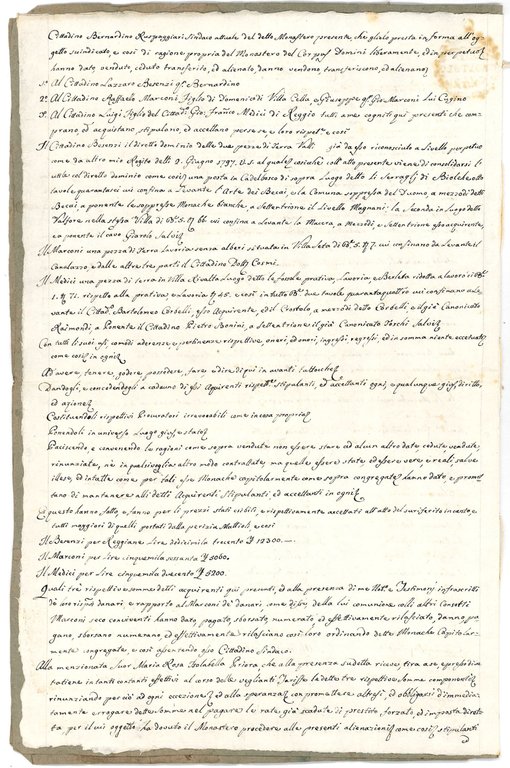 Cittadino Bernardino Ruspaggiari Sindaco attuale del detto Monastero presente, che glielo presta in forma all'og-
getto suindicato, e così di ragione propria del Monastero del Corpus Domini liberamente, ed in perpetuo
hanno dato, venduto, ceduto, transferito, ed alienato, danno, vendono, transferiscono, ed alienano
1° Al Cittadino Lazzaro Besenzi q.m Bernardino
2° Al Cittadino Raffaele Marconi Figlio di Domenico di Villa Cella, a Giuseppe q.m Gio: Marconi Lui Cugino
3° Al Cittadino Luigi Figlio del Cittad.o Gio: Franco Medici di Reggio tutti a me cogniti qui presenti che com-
prano, ed acquistano, stipulano, ed accettano per se, e loro rispet.e così
Il Cittadino Besenzi il diretto dominio delle due pezze di Terra Valli già da esso riconosciute a Livello perpetuo
come da altro mio Rogito delli 9. Giugno 1797. V.S. al quale coll'atto presente viene di consolidarsi l'u-
tile col diretto dominio come così una posta in Cadelbosco di sopra Luogo detto li Serragli di Biolche otto
tavole quarantasei cui confina a Levante l'Arte dei Becai, e la Comuna soppressa del Duomo, a mezzodì detti
Becai, a ponente le soppresse Monache bianche, a settentrione il Livello Magnani: la Seconda in Luogo detto
Valforte nella stessa Villa di B.e 5. T. 66 cui confina a Levante la Macera, a Mezzodì, e Settentrione esso acquirente,
e a ponente il cavo Giarolo Salvis
Il Marconi una pezza di terra lavoria senza alberi situata in Villa Seta di B.e 5. T. 7. cui confinano da Levante il
Canalazzo, e dalle altre tre parti il Cittadino Dott. Cosmi.
Il Medici una pezza di terra in Villa Rivalta Luogo detto le fossole prativa, Lavoria, e Berleta ridotta a lavoro di B.e
1. T. 71. rispetto alla prativa, e lavoria T. 65. e così in tutto B.e due tavole quarantaquattro cui confinano a Le-
vante il Cittad.o Bartolomeo Corbelli, esso Acquirente, ed il Crostolo, a mezzodì detto Corbelli, e il già Canonicato
Raimondi, a Ponente il Cittadino Pietro Bonini, a Settentrione il già Canonicato Torchi Salvis
Con tutti li suoi usi, comodi, aderenze, e pertinenze rispettive, oneri, ed onori, ingressi, regressi, ed in somma niente eccettuato
come così in ogni
Ad avere, tenere, godere, possedere, fare, e dire di qui in avanti tuttoché
Dandogli, e concedendogli a cadauno di essi Acquirenti rispett.e stipulanti, ed accettanti ogni, e qualunque gius, diritto,
ed azione
Costituendoli rispettivi Procuratori irrevocabili come in cosa propria
Ponendoli in universo Luogo gius, e stato
Pacisendo, e convenendo le ragioni come sopra vendute non essere state ad alcun altro date, cedute, vendute,
rinunziate, nè in qualsivoglia altro modo contrattate, ma quelle essere state, ed essere vere, e reali, salve
illese, ed intatte, come per tali esse Monache capitolarmente come sopra congregate hanno dato, e promet-
tono di mantenere alli detti Acquirenti Stipulanti ed accettanti in ogni
E questo hanno fatto, e fanno per li prezzi stati esibiti, e rispettivamente accettati all'atto del surriferito incanto, e
tutti maggiori di quelli portati dalla perizia Mattioli, e così
Il Besenzi per Reggiane Lire dodicimila trecento £ 12300. —
Il Marconi per Lire cinquemila sessanta £ 5060.
Il Medici per Lire cinquemila duecento £ 5200.
Quali tre rispettive somme detti acquirenti qui presenti, ed alla presenza di me Not.o e Testimonj infrascritti
de loro rispett.i danari, e rapporto al Marconi de' danari, come disse, della lui comunione colli altri Consorti
Marconi seco conviventi hanno dato, pagato, sborsato, numerato, ed effettivamente rilasciato, danno, pa-
gano, sborsano numerano, ed effettivamente rilasciano così loro ordinando dette Monache Capitolar-
mente congregate, e così assentendo esso Cittadino Sindaco.
Alla menzionata Suor Maria Rosa Isolabella Priora, che alla presenza sudetta riceve, tira a se, e presso di se
ritiene in tanti contanti effettivi al corso delle veglianti Tariffe le dette tre rispettive somme componenti
rinunziando perciò ad ogni eccezione, ed alla speranza con promettere altresì, ed obbligarsi d'immedia-
tamente erogare dette Somme nel pagare le rate già scadute di prestito forzato, ed imposta diret-
ta per il cui oggetto ha dovuto il Monastero procedere alle presenti alienazioni come così stipulanti